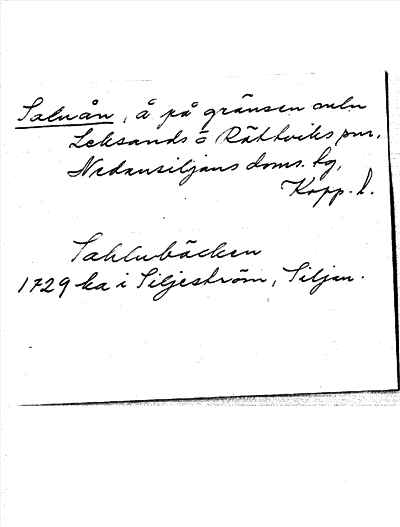 Saluån, å på gränsen mln
Leksands o Rättviks pnr,
Nedansiljans doms. hg,
Kopp. l.
Sahlubäcken
1729 ka i Siljeström, Siljan.